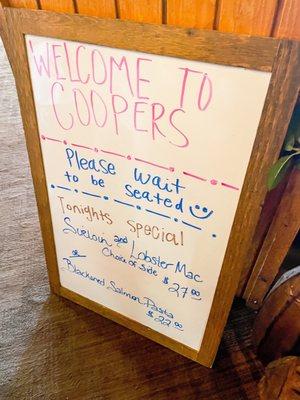 WELCOME TO
COOPERS
Please wait
to be seated
Tonights Special
Surloin and Lobster Mac
Choice of Side $27.00
OR
Blackened Salmon Pasta
$22.00